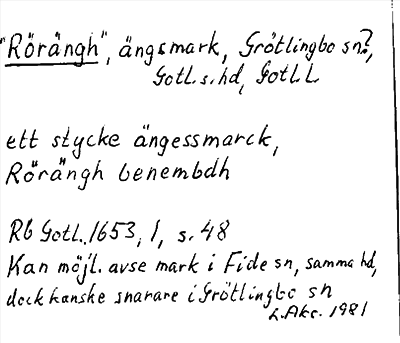 "Rörängh", ängsmark, Grötlingbo sn?,
Gotl.s.hd, Gotl.L.
ett stycke ängessmarck,
Rörängh benembdh
Rb Gotl. 1653, 1, s. 48
Kan möjl. avse mark i Fide sn, samma hd,
dock kanske snarare i Grötlingbo sn
L.Akc. 1981